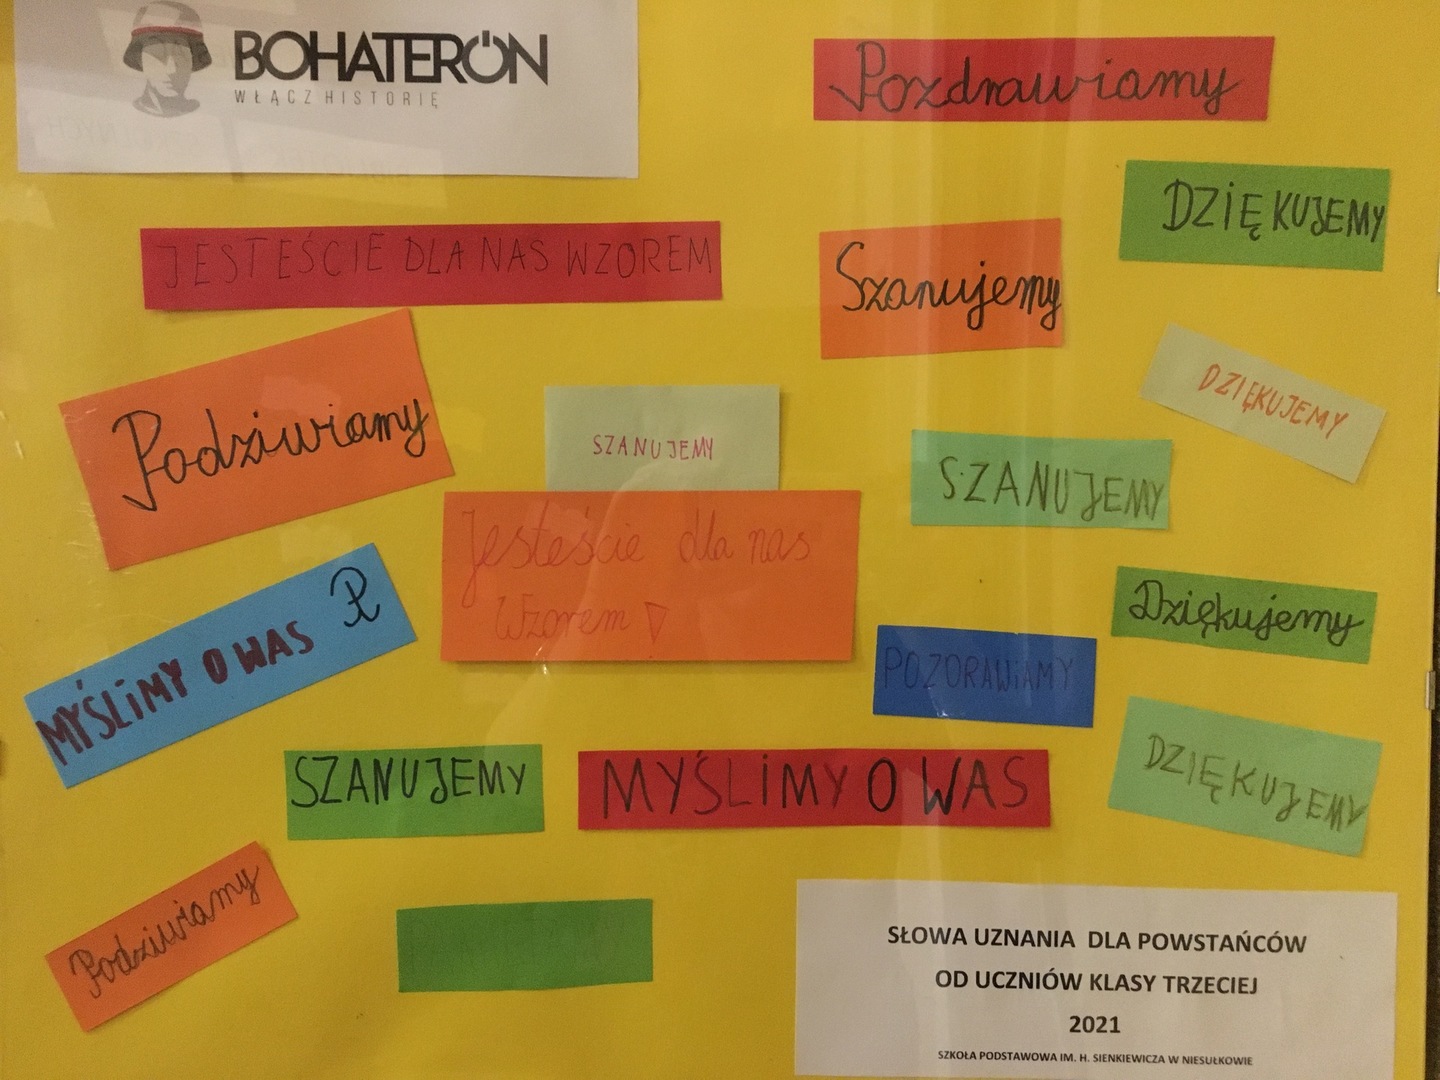 BOHATERÓN
WŁĄCZ HISTORIĘ
Pozdrawiamy
DZIĘKUJEMY
JESTEŚCIE DLA NAS WZOREM
Szanujemy
DZIĘKUJEMY
Podziwiamy
SZANUJEMY
SZANUJEMY
Jesteście dla nas
Wzorem
Dziękujemy
MYŚLIMY O WAS
POZDRAWIAMY
DZIĘKUJEMY
SZANUJEMY
MYŚLIMY O WAS
Podziwiamy
SŁOWA UZNANIA DLA POWSTAŃCÓW
OD UCZNIÓW KLASY TRZECIEJ
2021
SZKOŁA PODSTAWOWA IM. H. SIENKIEWICZA W NIESUŁKOWIE